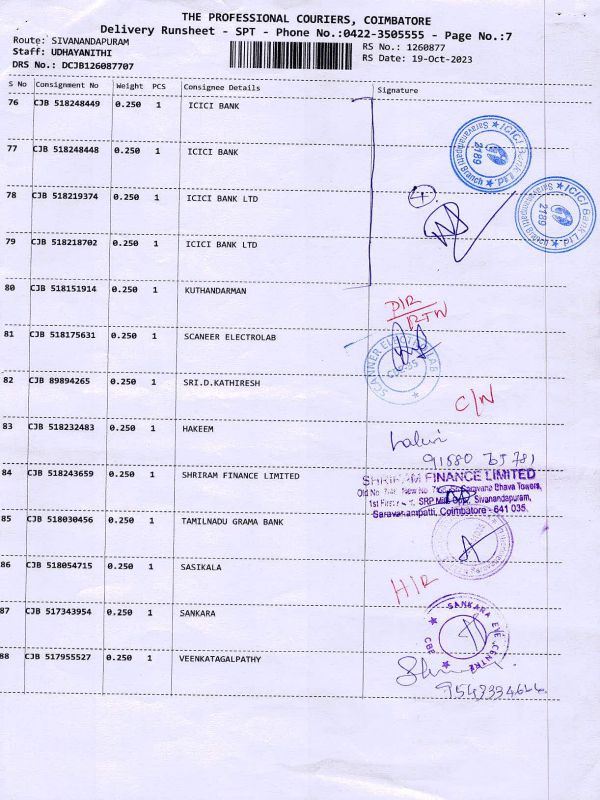 THE PROFESSIONAL COURIERS, COIMBATORE
Delivery Runsheet - SPT - Phone No.:0422-3505555 - Page No.:7
Route: SIVANANDAPURAM
Staff: UDHAYANITHI
DRS No.: DCJB126087707
RS No.: 1260877
RS Date: 19-Oct-2023
S No Consignment No Weight PCS Consignee Details Signature
76 CJB 518248449 0.250 1 ICICI BANK
77 CJB 518248448 0.250 1 ICICI BANK
78 CJB 518219374 0.250 1 ICICI BANK LTD
79 CJB 518218702 0.250 1 ICICI BANK LTD
ICICI Bank Ltd
2189
Saravanampatti Branch
4
ICICI Bank Ltd
2189
80 CJB 518151914 0.250 1 KUTHANDARMAN
D/R
RTN
81 CJB 518175631 0.250 1 SCANEER ELECTROLAB
82 CJB 89894265 0.250 1 SRI.D.KATHIRESH
C/N
83 CJB 518232483 0.250 1 HAKEEM
84 CJB 518243659 0.250 1 SHRIRAM FINANCE LIMITED
SHRIRAM FINANCE LIMITED
Saravana Bhava Towers,
Sivanandapuram,
Saravanampatti, Coimbatore - 641 035.
85 CJB 518030456 0.250 1 TAMILNADU GRAMA BANK
86 CJB 518054715 0.250 1 SASIKALA
H/R
87 CJB 517343954 0.250 1 SANKARA
SANKARA EYE CENTRE
CBE
88 CJB 517955527 0.250 1 VEENKATAGALPATHY